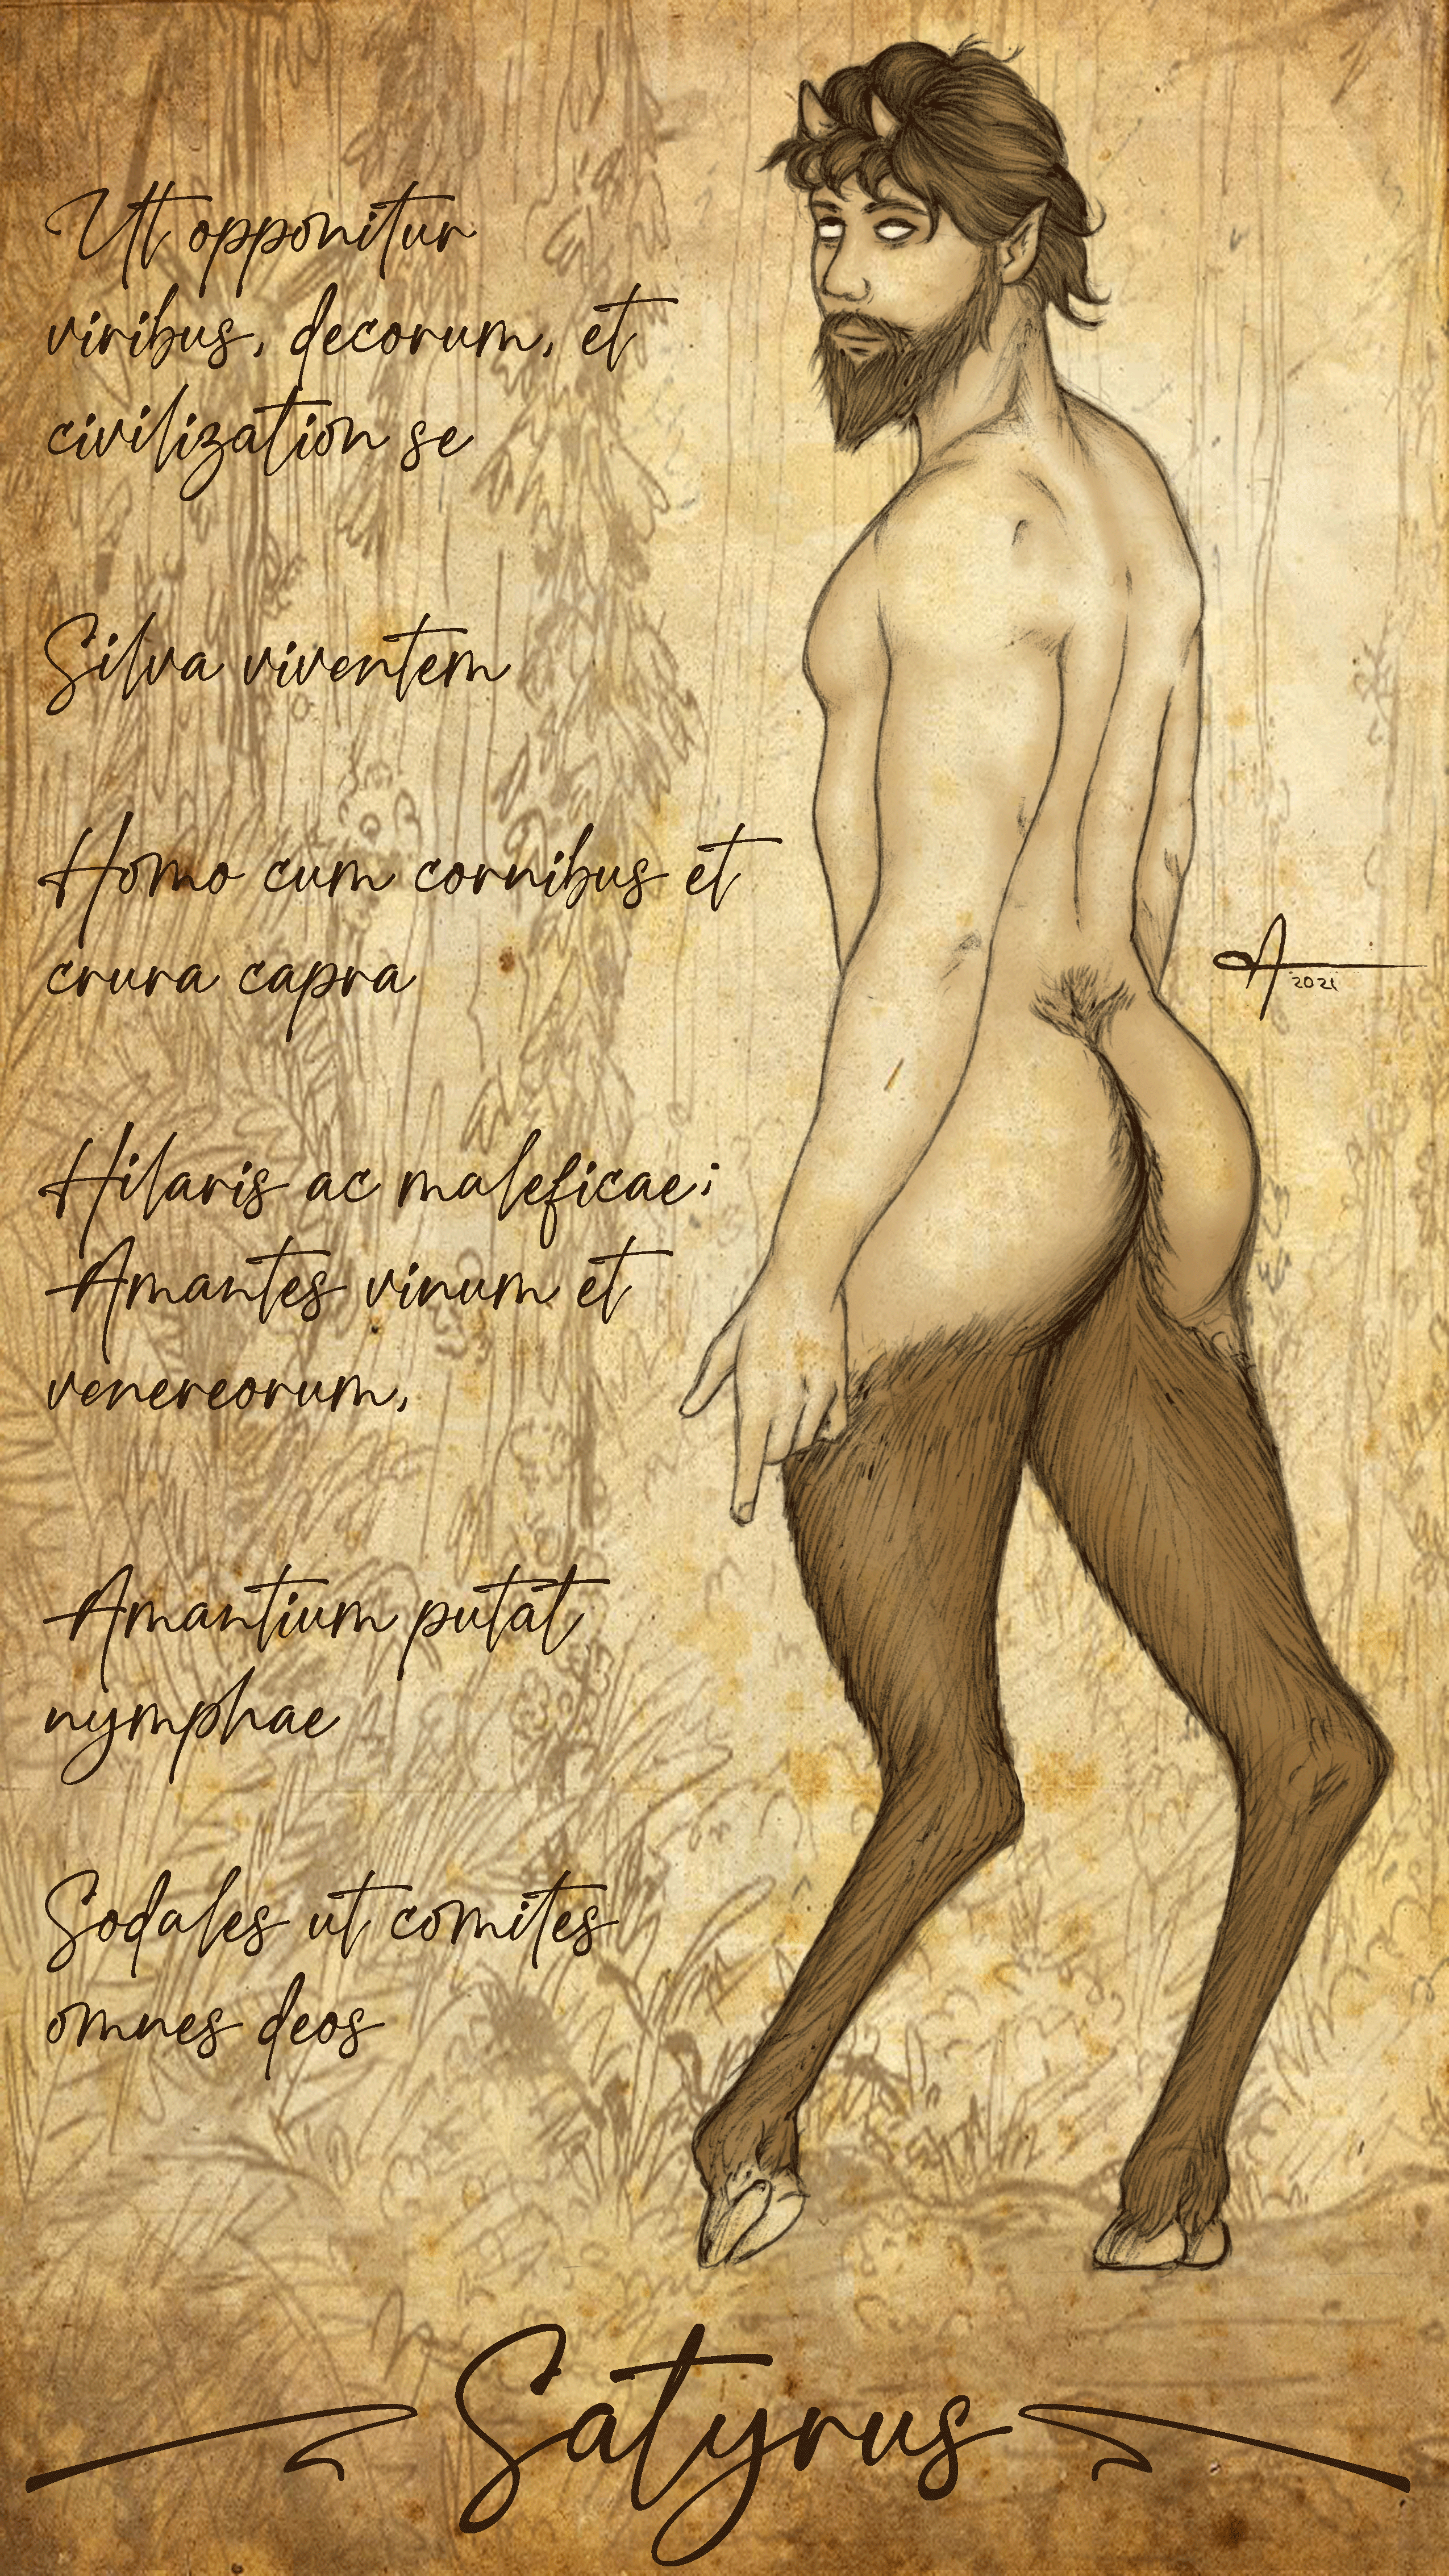 Ut opponitur
viribus, decorum, et
civilization se
Silva viventem
Homo cum cornibus et
crura capra
Hilaris ac maleficae;
Amantes vinum et
venereorum,
A
2021
Amantium putat
nymphae
Sodales ut comites
omnes deos
Satyrus